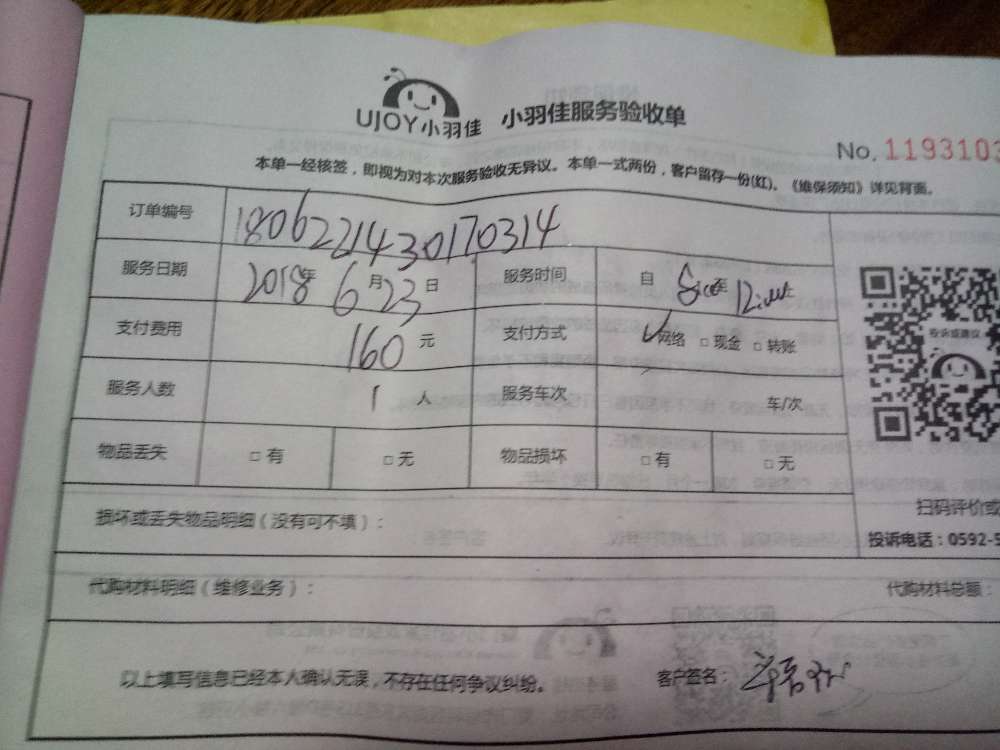 UJOY小羽佳 小羽佳服务验收单
No. 1193103
本单一经核签，即视为对本次服务验收无异议。本单一式两份，客户留存一份(红)。《维保须知》详见背面。
订单编号 18062214430170314
服务日期 2018年 6月23日 服务时间 自 8:00至 12:00
支付费用 160 元 支付方式 ✓网络 □ 现金 □ 转账
投诉或建议
服务人数 1 人 服务车次 车/次
物品丢失 □ 有 □ 无 物品损坏 □ 有 □ 无
扫码评价或
损坏或丢失物品明细（没有可不填）：
投诉电话：0592-5
代购材料明细（维修业务）： 代购材料总额：
以上填写信息已经本人确认无误，不存在任何争议纠纷。 客户签名：